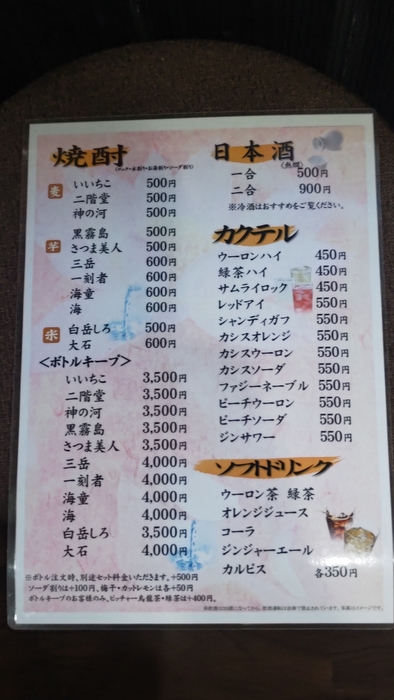 焼酎
(ロック・水割り・お湯割り・ソーダ割り)
麦
いいちこ 500円
二階堂 500円
神の河 500円
芋
黒霧島 500円
さつま美人 500円
三岳 600円
一刻者 600円
海童 600円
海 600円
米
白岳しろ 500円
大石 600円
<ボトルキープ>
いいちこ 3,500円
二階堂 3,500円
神の河 3,500円
黒霧島 3,500円
さつま美人 3,500円
三岳 4,000円
一刻者 4,000円
海童 4,000円
海 4,000円
白岳しろ 3,500円
大石 4,000円
※ボトル注文時、別途セット料金いただきます。+500円
ソーダ割りは+100円、梅干・カットレモンは各+50円
ボトルキープのお客様のみ、ピッチャー烏龍茶・緑茶は+400円。
日本酒
(熱燗)
一合 500円
二合 900円
※冷酒はおすすめをご覧ください。
カクテル
ウーロンハイ 450円
緑茶ハイ 450円
サムライロック 450円
レッドアイ 550円
シャンディガフ 550円
カシスオレンジ 550円
カシスウーロン 550円
カシスソーダ 550円
ファジーネーブル 550円
ピーチウーロン 550円
ピーチソーダ 550円
ジンサワー 550円
ソフトドリンク
ウーロン茶 緑茶
オレンジジュース
コーラ
ジンジャーエール
カルピス 各350円